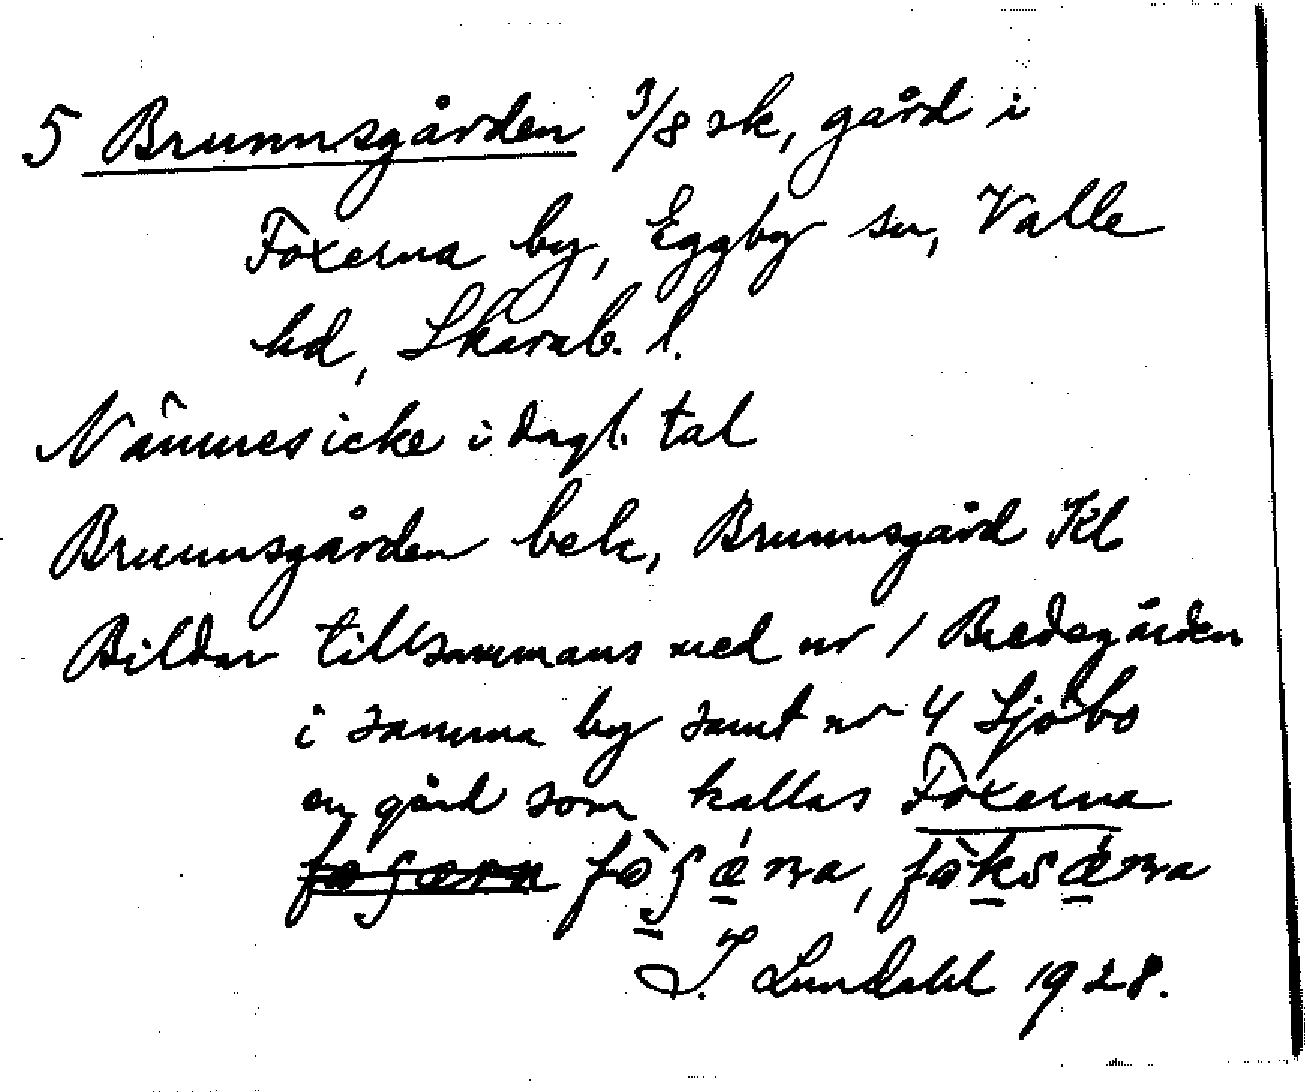 5 Brunnsgården 3/8 sk, gård i
Foxerna by, Eggby sn, Valle
hd, Skarab. l.
Nämnes icke i dagl. tal
Brunnsgården bek, Brunnsgård Kl
Bildar tillsammans med nr 1 Bredegården
i samma by samt nr 4 Sjöbo
en gård som kallas Foxerna
I. Lundahl 1928.